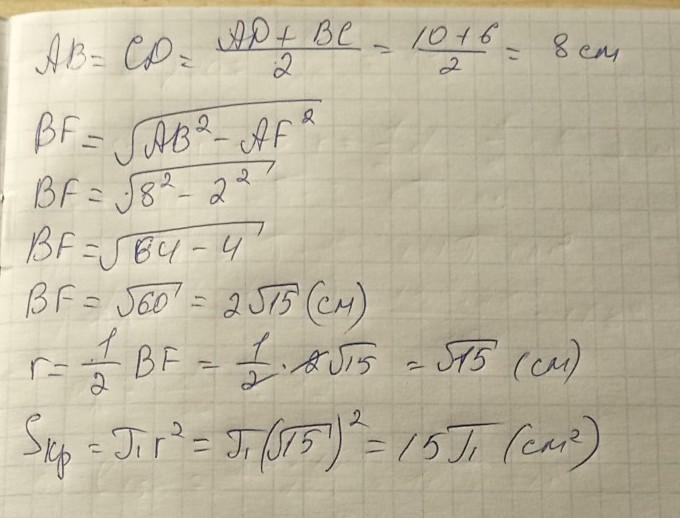 AB = CD = (AD + BC)/2 = (10+6)/2 = 8 см
BF = √(AB² - AF²)
BF = √(8² - 2²)
BF = √(64 - 4)
BF = √60 = 2√15 (см)
r = 1/2 BF = 1/2 · 2√15 = √15 (см)
Sкр = πr² = π(√15)² = 15π (см²)